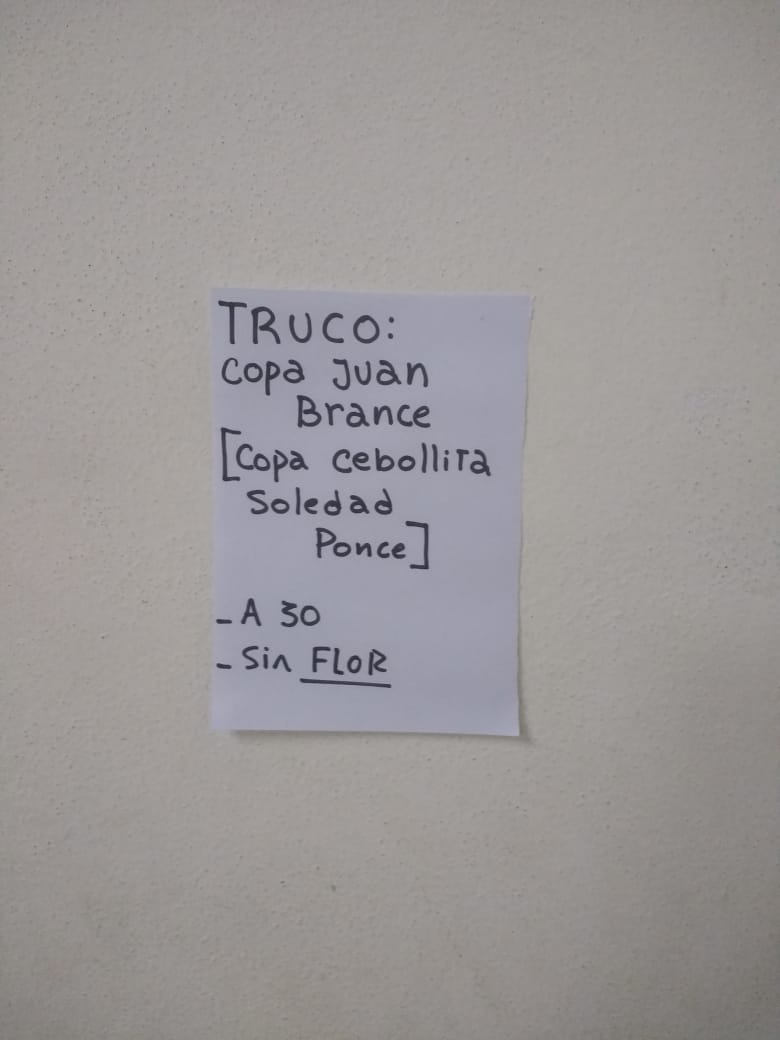 TRUCO:
Copa Juan
Brance
[Copa cebollita
Soledad
Ponce]
- A 30
- Sin FLOR